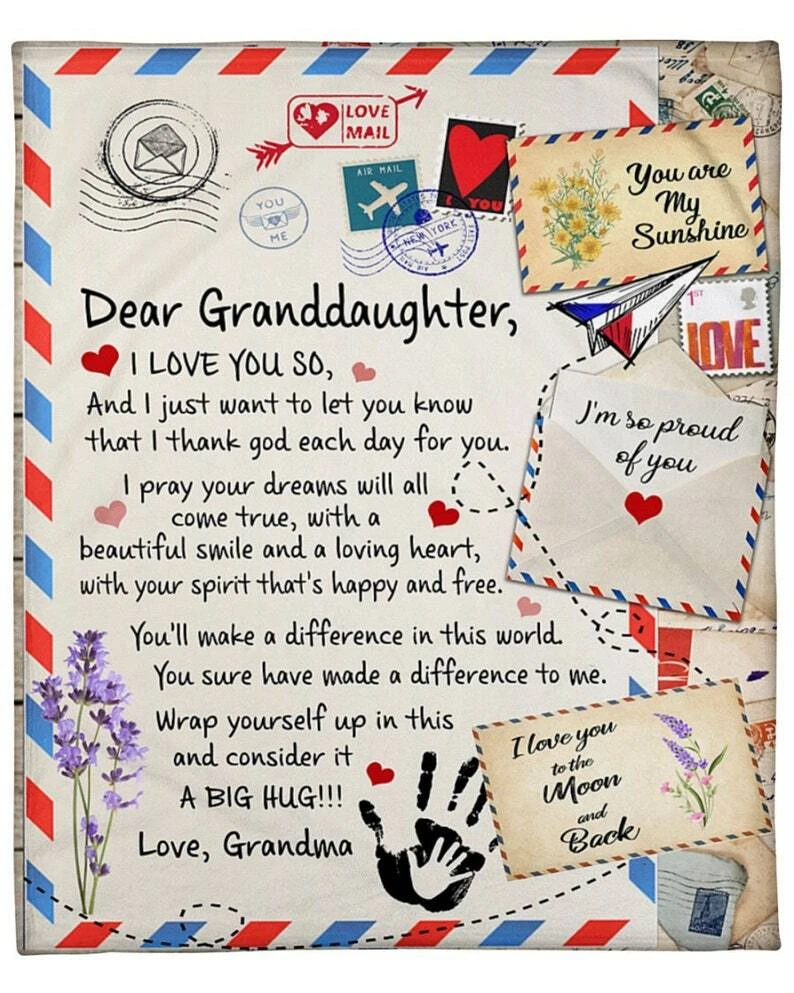 LOVE
MAIL
AIR MAIL
I YOU
YOU
ME
NEW YORK
AIR MAIL
You are
My
Sunshine
1ST
LOVE
Dear Granddaughter,
I LOVE YOU SO,
And I just want to let you know
that I thank god each day for you.
I'm so proud
of you
I pray your dreams will all
come true, with a
beautiful smile and a loving heart,
with your spirit that's happy and free.
You'll make a difference in this world.
You sure have made a difference to me.
Wrap yourself up in this
and consider it
A BIG HUG!!!
Love, Grandma
I love you
to the
Moon
and
Back